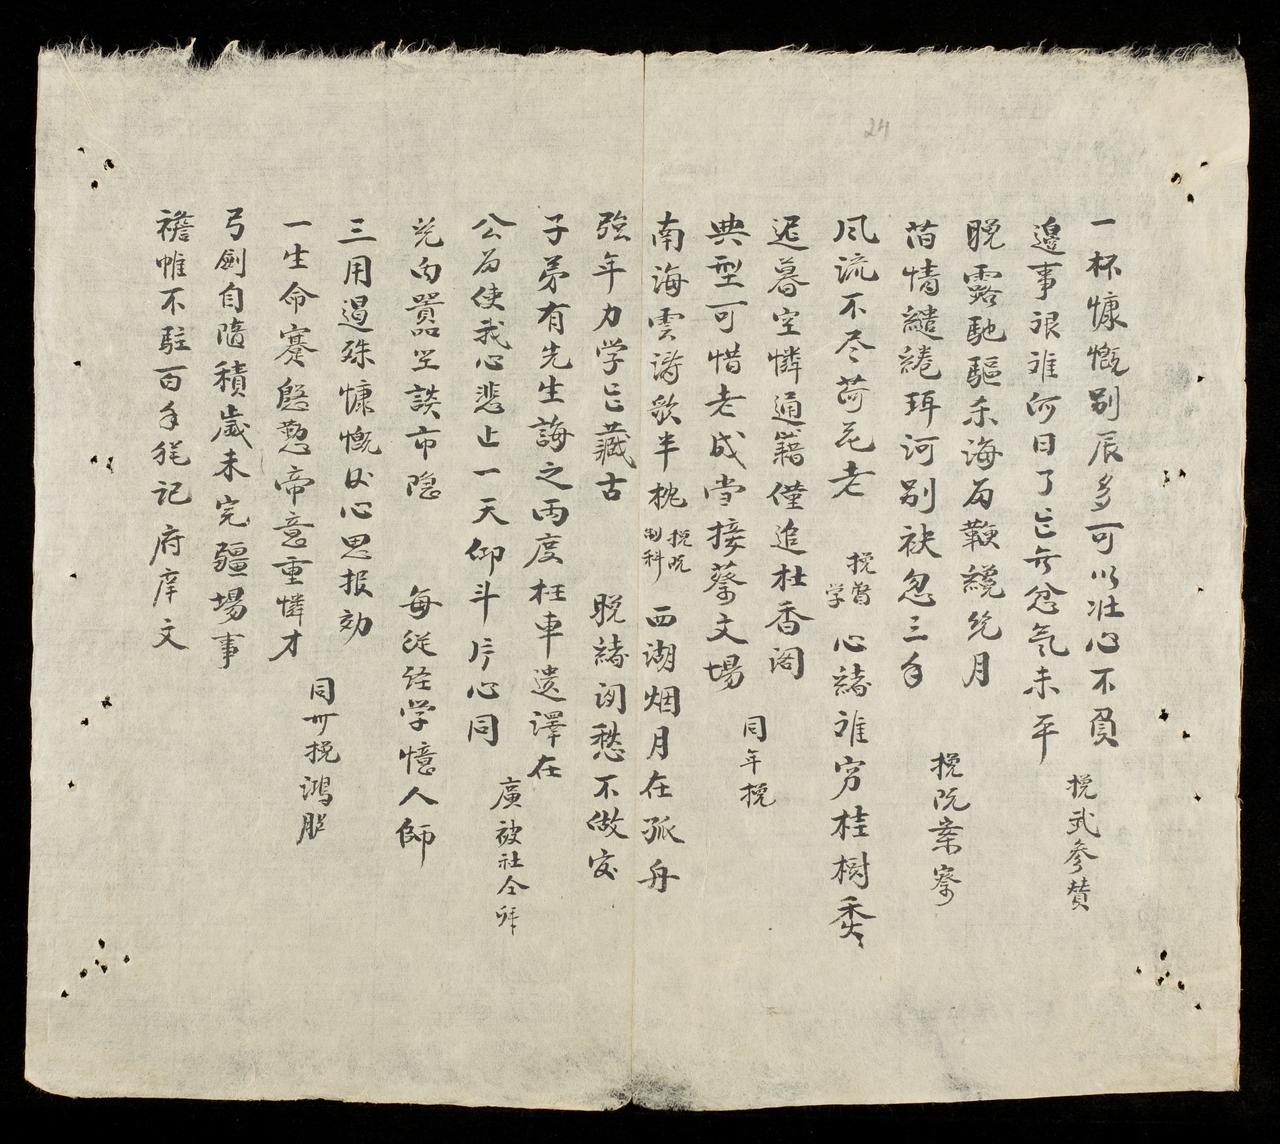 24
一杯慷慨别辰多可以壮心不負
挽武参賛
邉事艰难何日了亡兮忿气未平
晩露馳驅东海為鞭繞月
挽阮案察
昔情繾綣珥河别袂忽三年
风流不尽荷花老 挽督学 心緒难穷桂樹香
迟暮空憐通籍僅追杜香阁
典型可惜老成尝接蔡文場
同年挽
南海雲涛欹半枕 挽阮制科 西湖烟月在孤舟
強年力学亡藏古 晩緒闭愁不做官
子弟有先生誨之両度枉車遺澤在
公為使我心悲止一天仰斗片心同
廣被社仝拜
兑向嚣里談市隐 每従经学憶人師
三用遏殊慷慨及心思报効
同州挽鴻胪
一生命蹇慇懃帝意重憐才
弓劍自隨積歲未完疆場事
襜帷不駐百年犹记府庠文